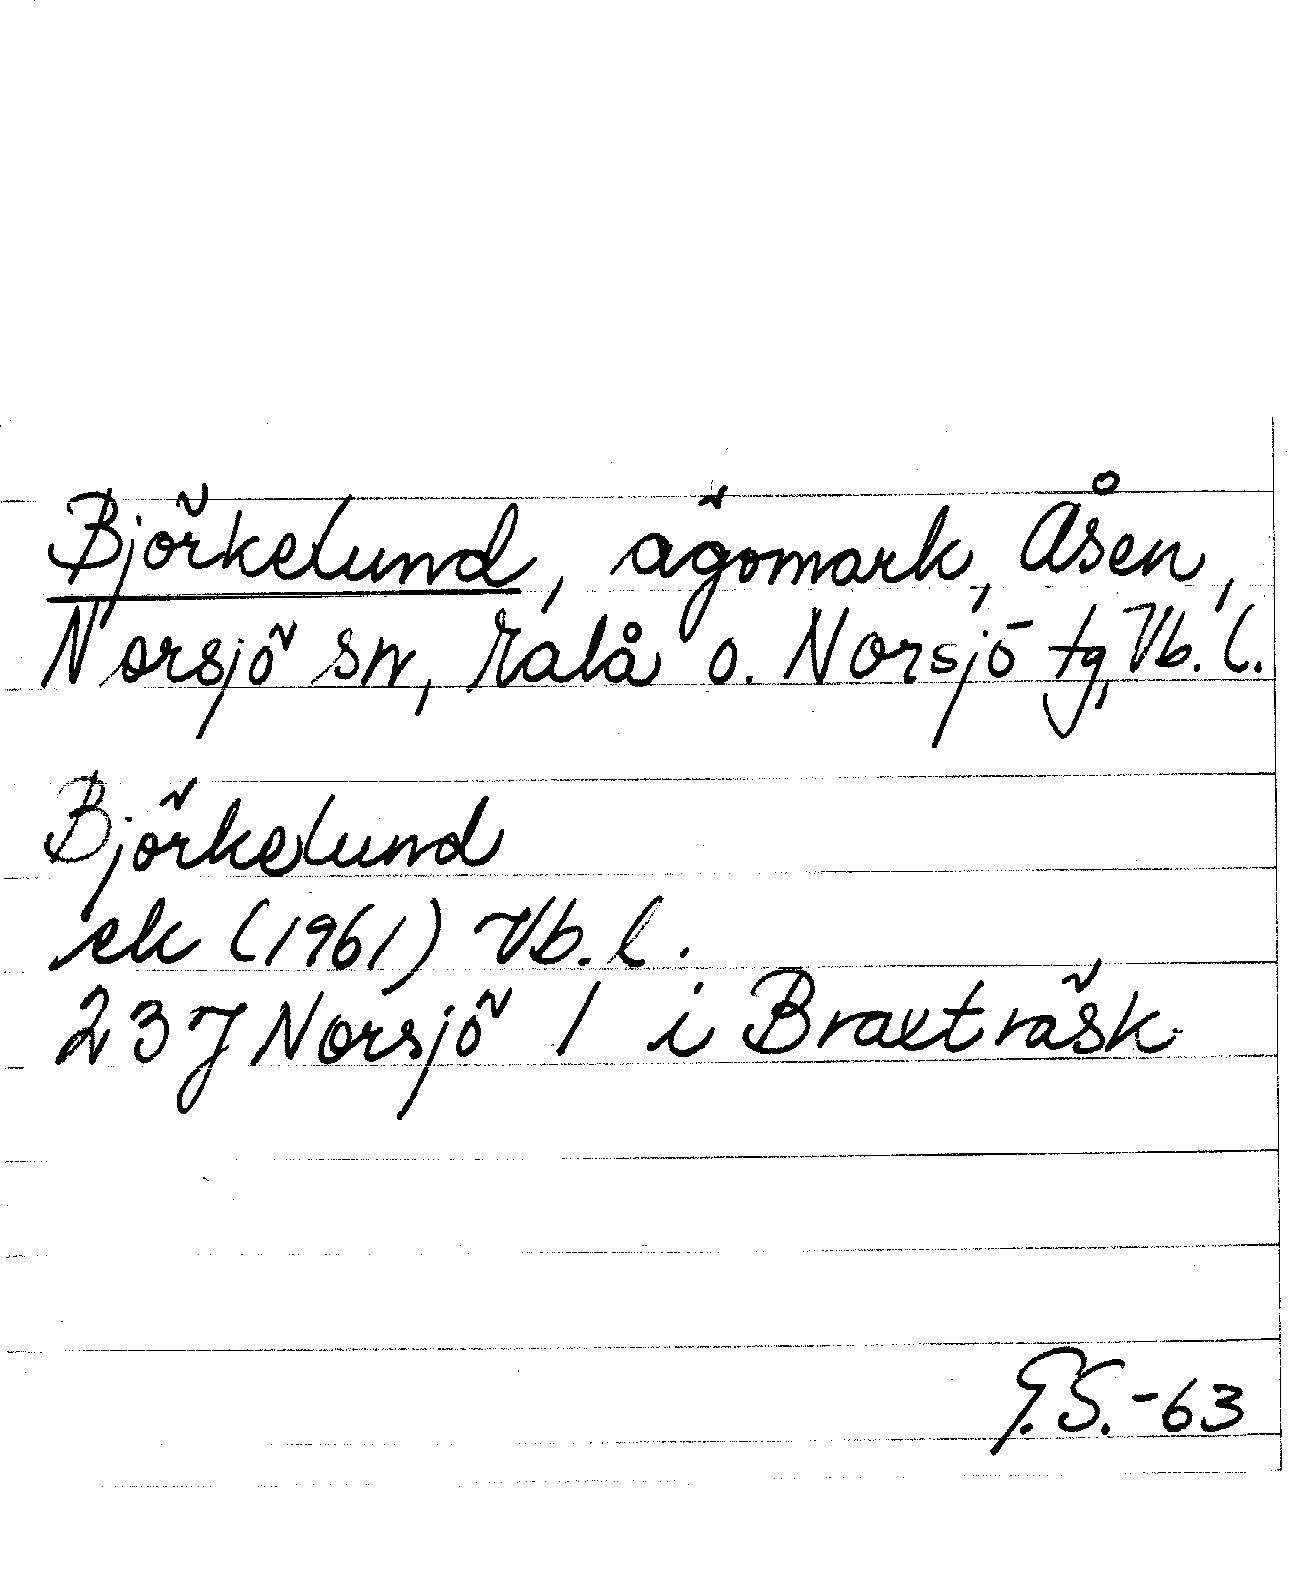 Björkelund, ägomark, Åsen,
Norsjö sn, Malå o. Norsjö tg, Vb. l.
Björkelund
ek (1961) Vb. l.
23J Norsjö 1 i Braxträsk
G.S.-63